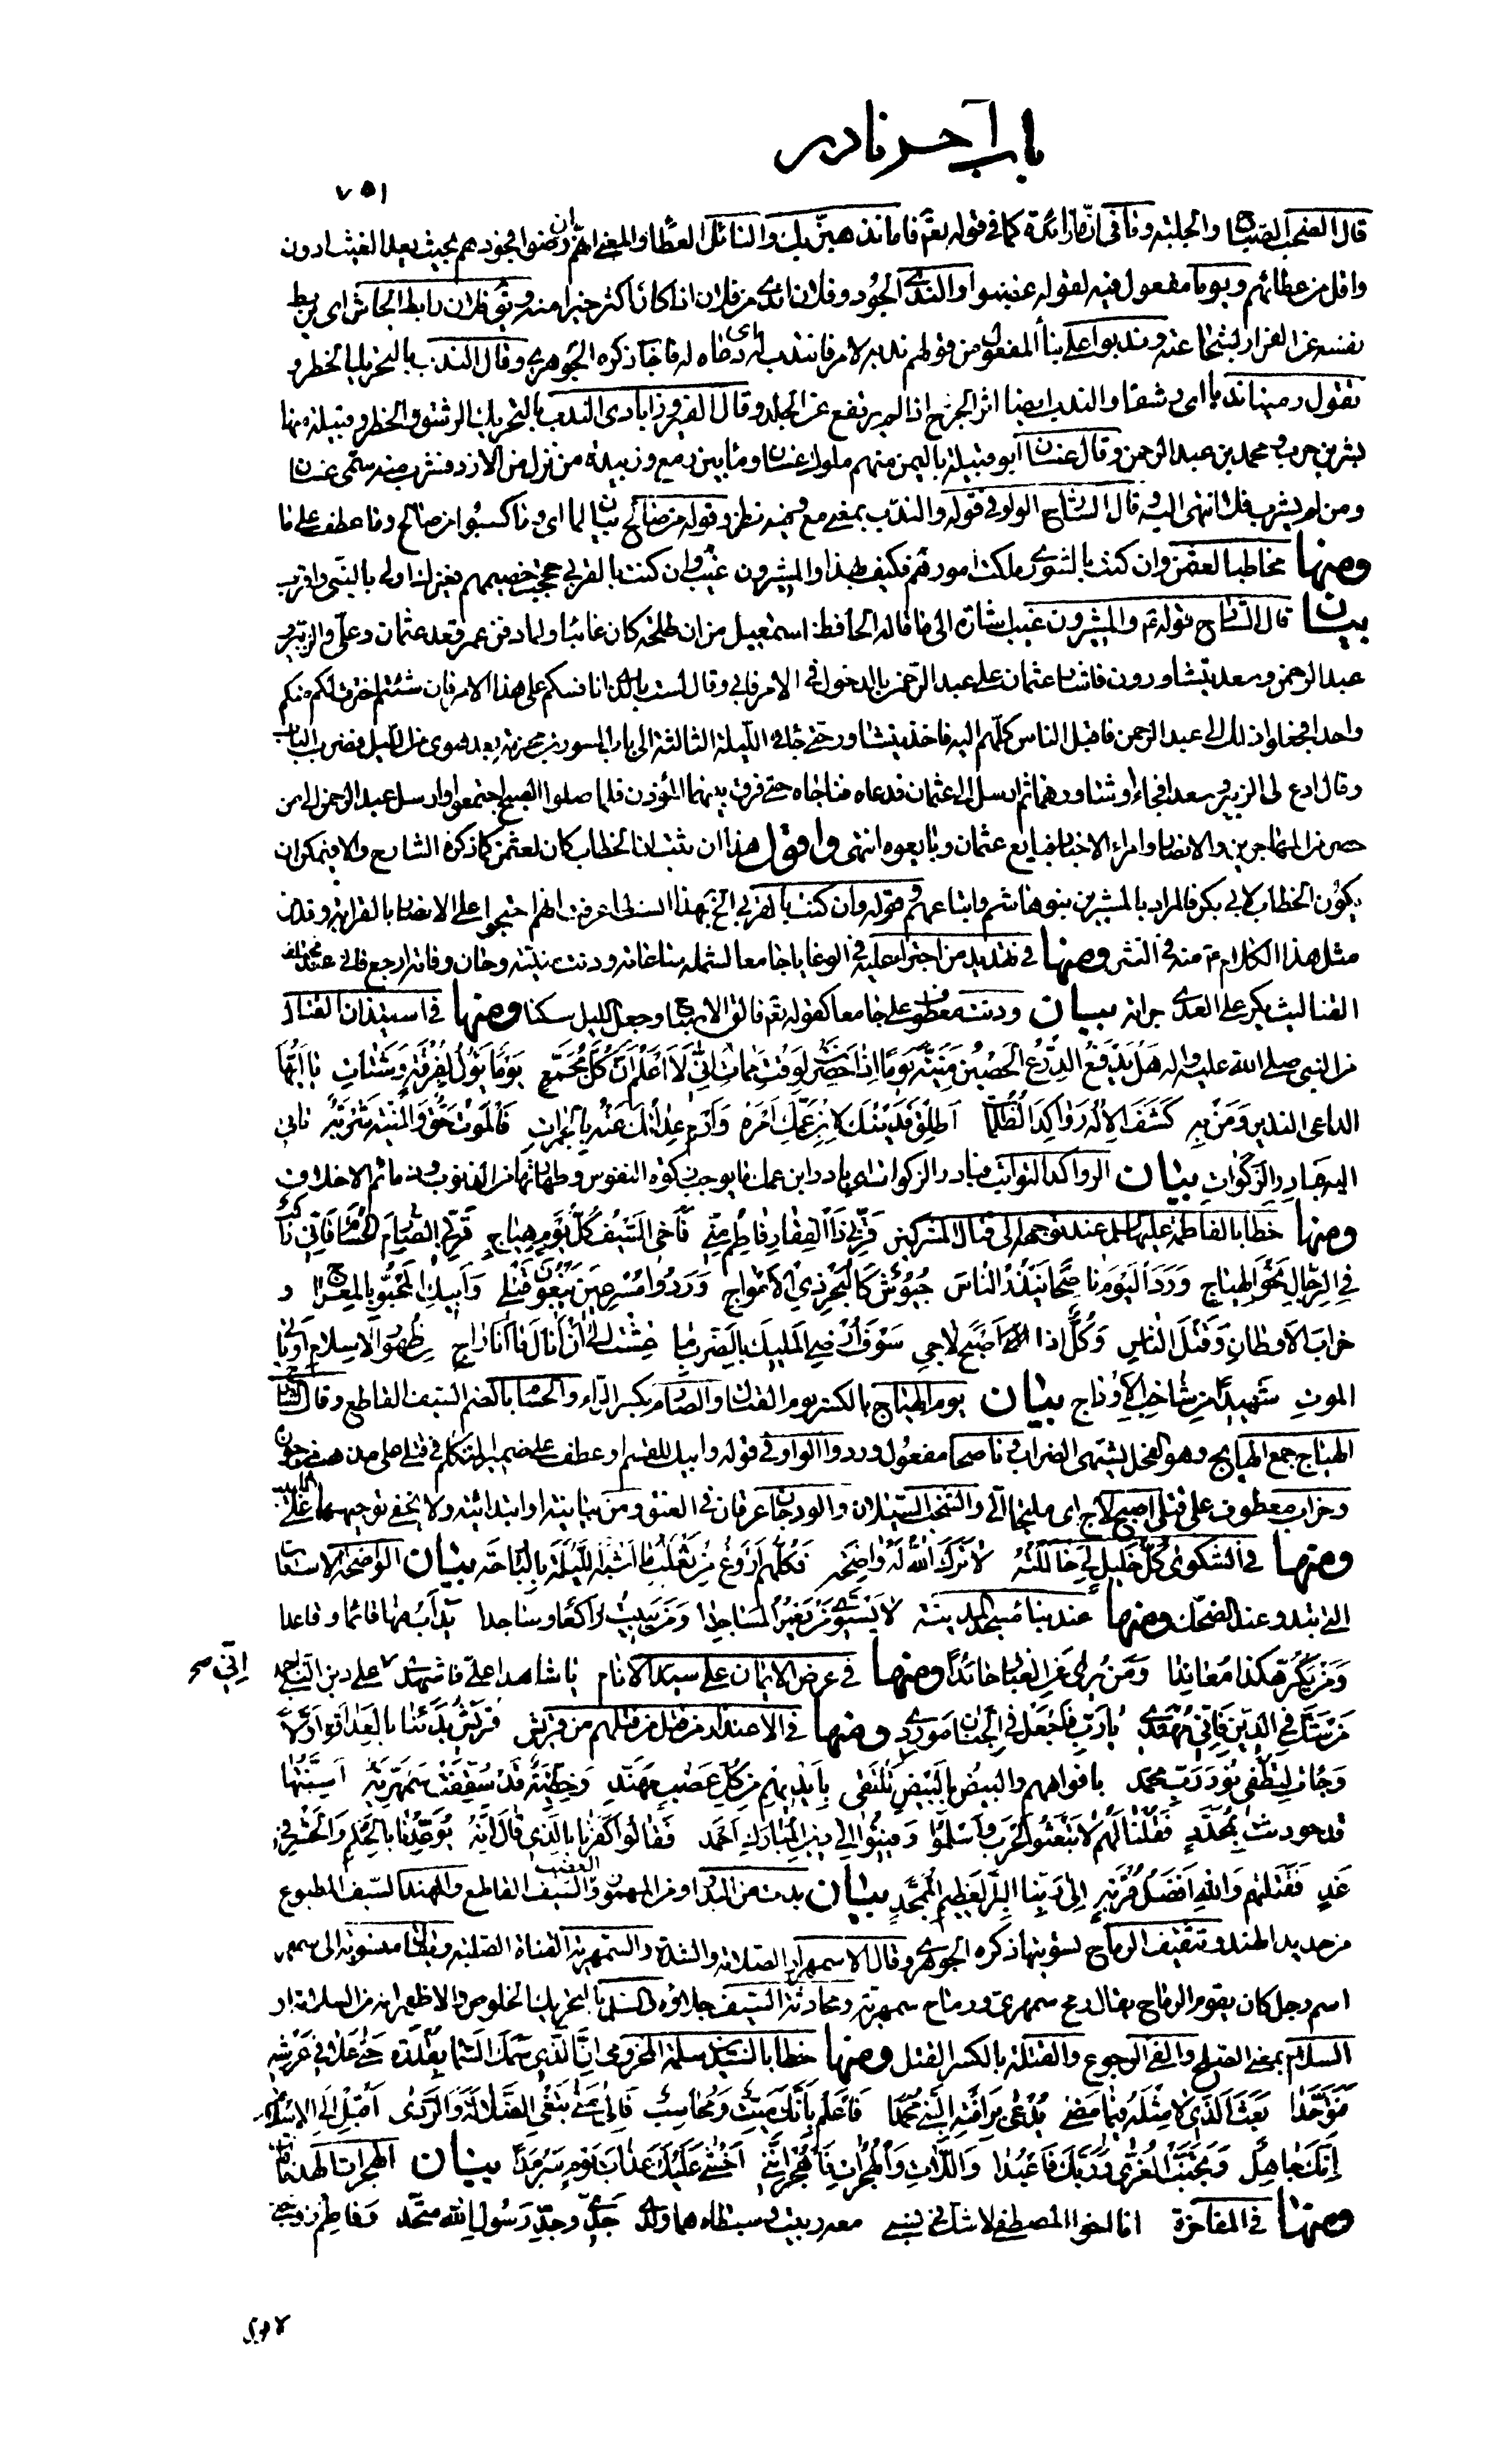 باب آخر نادر
٧٥١
قال الصخب الصياح والجلبة وما في انّما زائدة كما في قوله تعالى فاما نذهبنّ بك والنائل العطاء والمعنى انهم ان ضنوا فجودهم بحيث يعد الغيث ادون
واقل من عطائهم ويوما مفعول فيه لقوله غضبوا والندى الجود وفلان اندى من فلان اذا كان اكثر خيرا منه ويق فلان رابط الجاش اى يربط
نفسه عن الفرار لشجاعته وندبوا على بناء المفعول من قولهم ندبه لامر فانتدب له اى دعاه له فاجاب ذكره الجوهرى وقال الندب بالتحريك الخطر و
تقول رمينا ندبا اى رشقا والندب ايضا اثر الجرح اذا لم يرتفع عن الجلد وقال الفيروزابادى الندب بالتحريك الرشق والخطر وقبيلة منها
بشر بن حرب ومحمد بن عبد الرحمن وقال غسان ابو قبيلة باليمن منهم ملوك غسان وماء بين رمع وزبيد من نزل من الازد فشرب منه سمّى غسان
ومن لم يشرب فلا انتهى اليه قال الشارح الواو فى قوله والندب بمعنى مع وفيه نظر وقوله من صالح بيان لما اى وما كسبوا من صالح وما عطف على ما
ومنها مخاطبا لعثمن وان كنت بالشورى ملكت امورهم فكيف بهذا والمشيرون غيّب وان كنت بالقربى حججت خصيمهم فغيرك اولى بالنبى واقرب
بيان قال الشارح قوله ع والمشيرون غيب اشارة الى ما قاله الحافظ اسمعيل من ان طلحة كان غائبا ولما دفن عمر قعد عثمان وعلى والزبير و
عبد الرحمن وسعد يتشاورون فاشار عثمان على عبد الرحمن بالدخول فى الامر فابى وقال لست بالذى انافسكم على هذا الامر فان شئتم اخترت لكم منكم
واحدا فجعلوا ذلك الى عبد الرحمن فاقبل الناس كلّهم اليه فاخذ يتشاور حتى جاء فى الليلة الثالثة الى باب المسور بن مخرمة بعد هوى من الليل فضرب الباب
وقال ادع لى الزبير وسعدا فجاءا وشاورهما ثم ارسل الى عثمان فدعاه فناجاه حتى فرق بينهما المؤذن فلما صلوا الصبح اجتمعوا وارسل عبد الرحمن الى من
حضر من المهاجرين والانصار وامراء الاجناد فبايع عثمان وبايعوه انتهى واقول هذا ان ثبت ان الخطاب كان لعثمن كما ذكره الشارح والا فيمكن ان
يكون الخطاب لابى بكر فالمراد بالمشيرين بنو هاشم واتباعهم وقوله وان كنت بالقربى الخ بهذا السند اعرف لانهم احتجوا على الانصار بالقرابة وقد مر
مثل هذا الكلام ع منه فى النثر ومنها فى تهديد من اجترء عليه فى الوغا يا جامعا لشمله ساعاته ودنت منيته وحان وفاته ارجع فانى عند مختلف
القنا ليث يكر على العدى جراته بيان ودنت معطوف على جامعا كقوله تعالى فالق الاصباح وجعل الليل سكنا ومنها فى استيذان القتال
من النبى صلى الله عليه وآله هل يدفع الدرع الحصين منيّة يوما اذا حضرت لوقت ممات انى لاعلم ان كل مجمّع يوما يؤل لفرقة وشتات يا ايها
الداعى النذير ومن به كشف الاله رواكد الظلماء اطلق فديتك لابن عمك امره وارم عداتك عنه بالجمرات فالموت حق والمنية شربة تاتى
اليه فبادر الزكوات بيان الرواكد الثوابت فبادر الزكوات اى بادر ابن عمك ما يوجب زكوة النفوس وطهارتها من الذنوب وذمائم الاخلاق
ومنها خطابا لفاطمة عليها السلم عند توجهه الى قتال المشركين قرّبى ذا الفقار فاطم منّى فاخى السيف كل يوم هياج قربى الصارم الحسام فانى راكب
فى الرجال نحو الهياج ورد اليوم ناصحا ينذر الناس جيوش كالبحر ذى الامواج وردوا مسرعين يبغون قتلى وابيك المحبوّ بالمعراج و
خراب الاوطان وقتل الناس وكل اذا اصبح لاجى سوف ارضى المليك بالضرب ما عشت الى ان انال ما انا راج من ظهور الاسلام او ياتى
الموت شهيدا من شاخب الاوداج بيان يوم الهياج بالكسر يوم القتال والصارم بكسر الراء والحسام بالضم السيف القاطع وقال الشارح
الهياج جمع الهايج وهو الفحل يشتهى الضراب ناصحا مفعول وردوا الواو فى قوله وابيك للقسم او عطف على ضمير المتكلم فى قتلى على مذهب من جوزه
وخراب معطوف على قتلى اصبح لاج اى ملتجا الىّ والشخب السيلان والودجان عرقان فى العنق ومن بيانية او ابتدائية ولا يخفى توجيههما على
ومنها فى الشكوى كل خليل لى خاللته لا ترك الله له واضحة فكلهم اروغ من ثعلب ما اشبه الليلة بالبارحة بيان الواضحة الاسنان
التى تبدو عند الضحك ومنها عند بناء مسجد المدينة لا يستوى من يعمر المساجدا ومن يبيت راكعا وساجدا يدأب فيها قائما وقاعدا
ومن يكرّ هكذا معاندا ومن يرى عن الغبار حائدا ومنها فى عرض الايمان على سيد الانام يا شاهد اعلىّ فاشهد على دين النبى احمد
انّى صح
من شك فى الدين فانى مهتدى يا رب فاجعل فى الجنان موردى ومنها فى الاعتذار من قتل من قتلهم من قريش قريش بدئتنا بالعداوة اوّلا
وجاءت ليطفى نور رب محمد بافواههم والبيض بالبيض تلتقى بايديهم من كل عضب مهنّد وخطية قد سقفت سمهرية اسنّتها
قد حودثت بمحدّد فقلنا لهم لا تبعثوا الحرب واسلموا وفيئوا الى دين المبارك احمد فقالوا كفرنا بالذى قال انه يوعّدنا بالحكم والحشر فى
غد فقتلهم والله افضل قربة الى ربنا البر العظيم الممجّد بيان بدت من البدا او من المهموز والسيف القاطع والمهند السيف المطبوع
العضب
من حديد الهند وتثقيف الرماح تسويتها ذكره الجوهرى وقال الاسمهرار الصلابة والشدة والسمهرية القناة الصلبة ويقال منسوبة الى سمهر
اسم رجل كان يقوم الرماح يقال رمح سمهرى ورماح سمهرية ومحادثة السيف جلاؤه والسلم بالتحريك الخلوص والاظهر انه من السلامة او
السلام بمعنى الصلح والفئ الرجوع والقتلة بالكسر القتل ومنها خطابا لاسيد بن سلمة المخزومى ان الذى سمك السماء بقدرة حتى علا فى عرشه
فتوحّدا بعث الذى لا مثله فيما مضى يدعى برافته النبى محمدا فاعلم بانك ميّت ومحاسب فالى متى تبغى الضلالة والردى اقبل الى الاسلام
انك جاهل وتجنب العزى وربك فاعبدا واللات والهجرات فاهجر اننى اخشى عليك عذاب يوم سرمدا بيان الهجرات الهذيان
ومنها فى المفاخرة انا اخو المصطفى لا شك فى نسبى معه ربيت وسبطاه هما ولدى جدى وجد رسول الله متحد وفاطم زوجتى
لا قول